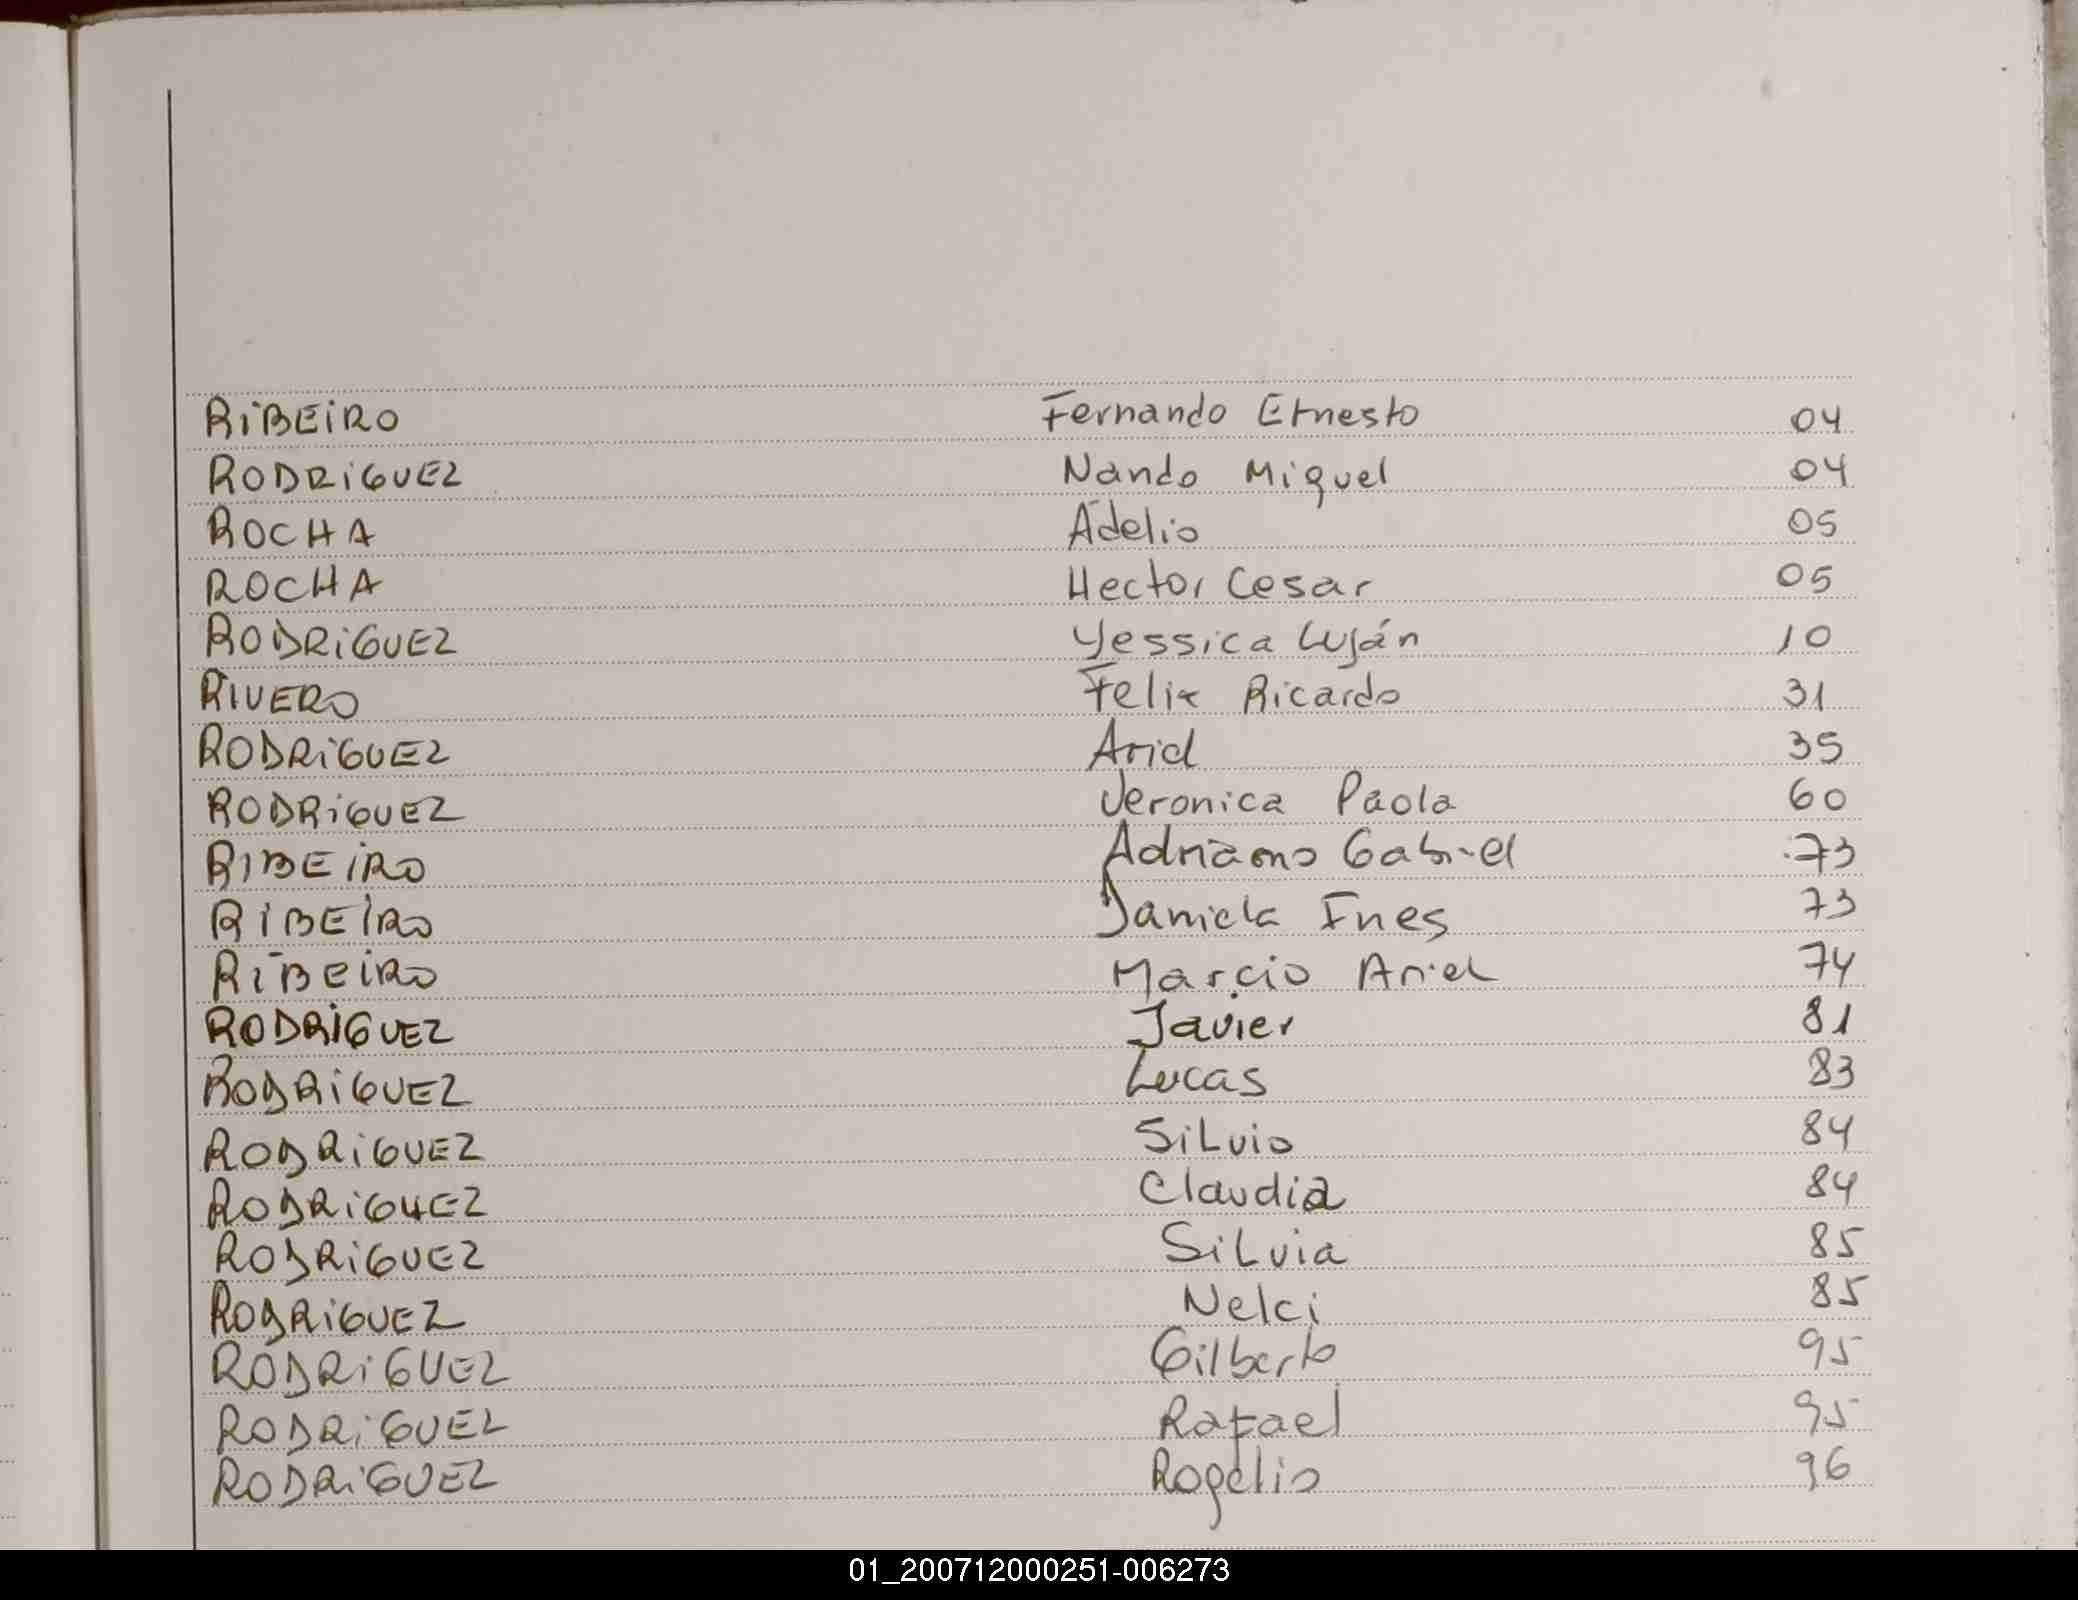 RIBEIRO Fernando Ernesto 04
RODRIGUEZ Nando Miguel 04
ROCHA Adelio 05
ROCHA Hector Cesar 05
RODRIGUEZ Yessica Luján 10
RIVERO Felix Ricardo 31
RODRIGUEZ Ariel 35
RODRIGUEZ Veronica Paola 60
RIBEIRO Adriano Gabriel 73
RIBEIRO Daniela Ines 73
RIBEIRO Marcio Ariel 74
RODRIGUEZ Javier 81
RODRIGUEZ Lucas 83
RODRIGUEZ Silvio 84
RODRIGUEZ Claudia 84
RODRIGUEZ Silvia 85
RODRIGUEZ Nelci 85
RODRIGUEZ Gilberto 95
RODRIGUEZ Rafael 95
RODRIGUEZ Rogelio 96
01_200712000251-006273